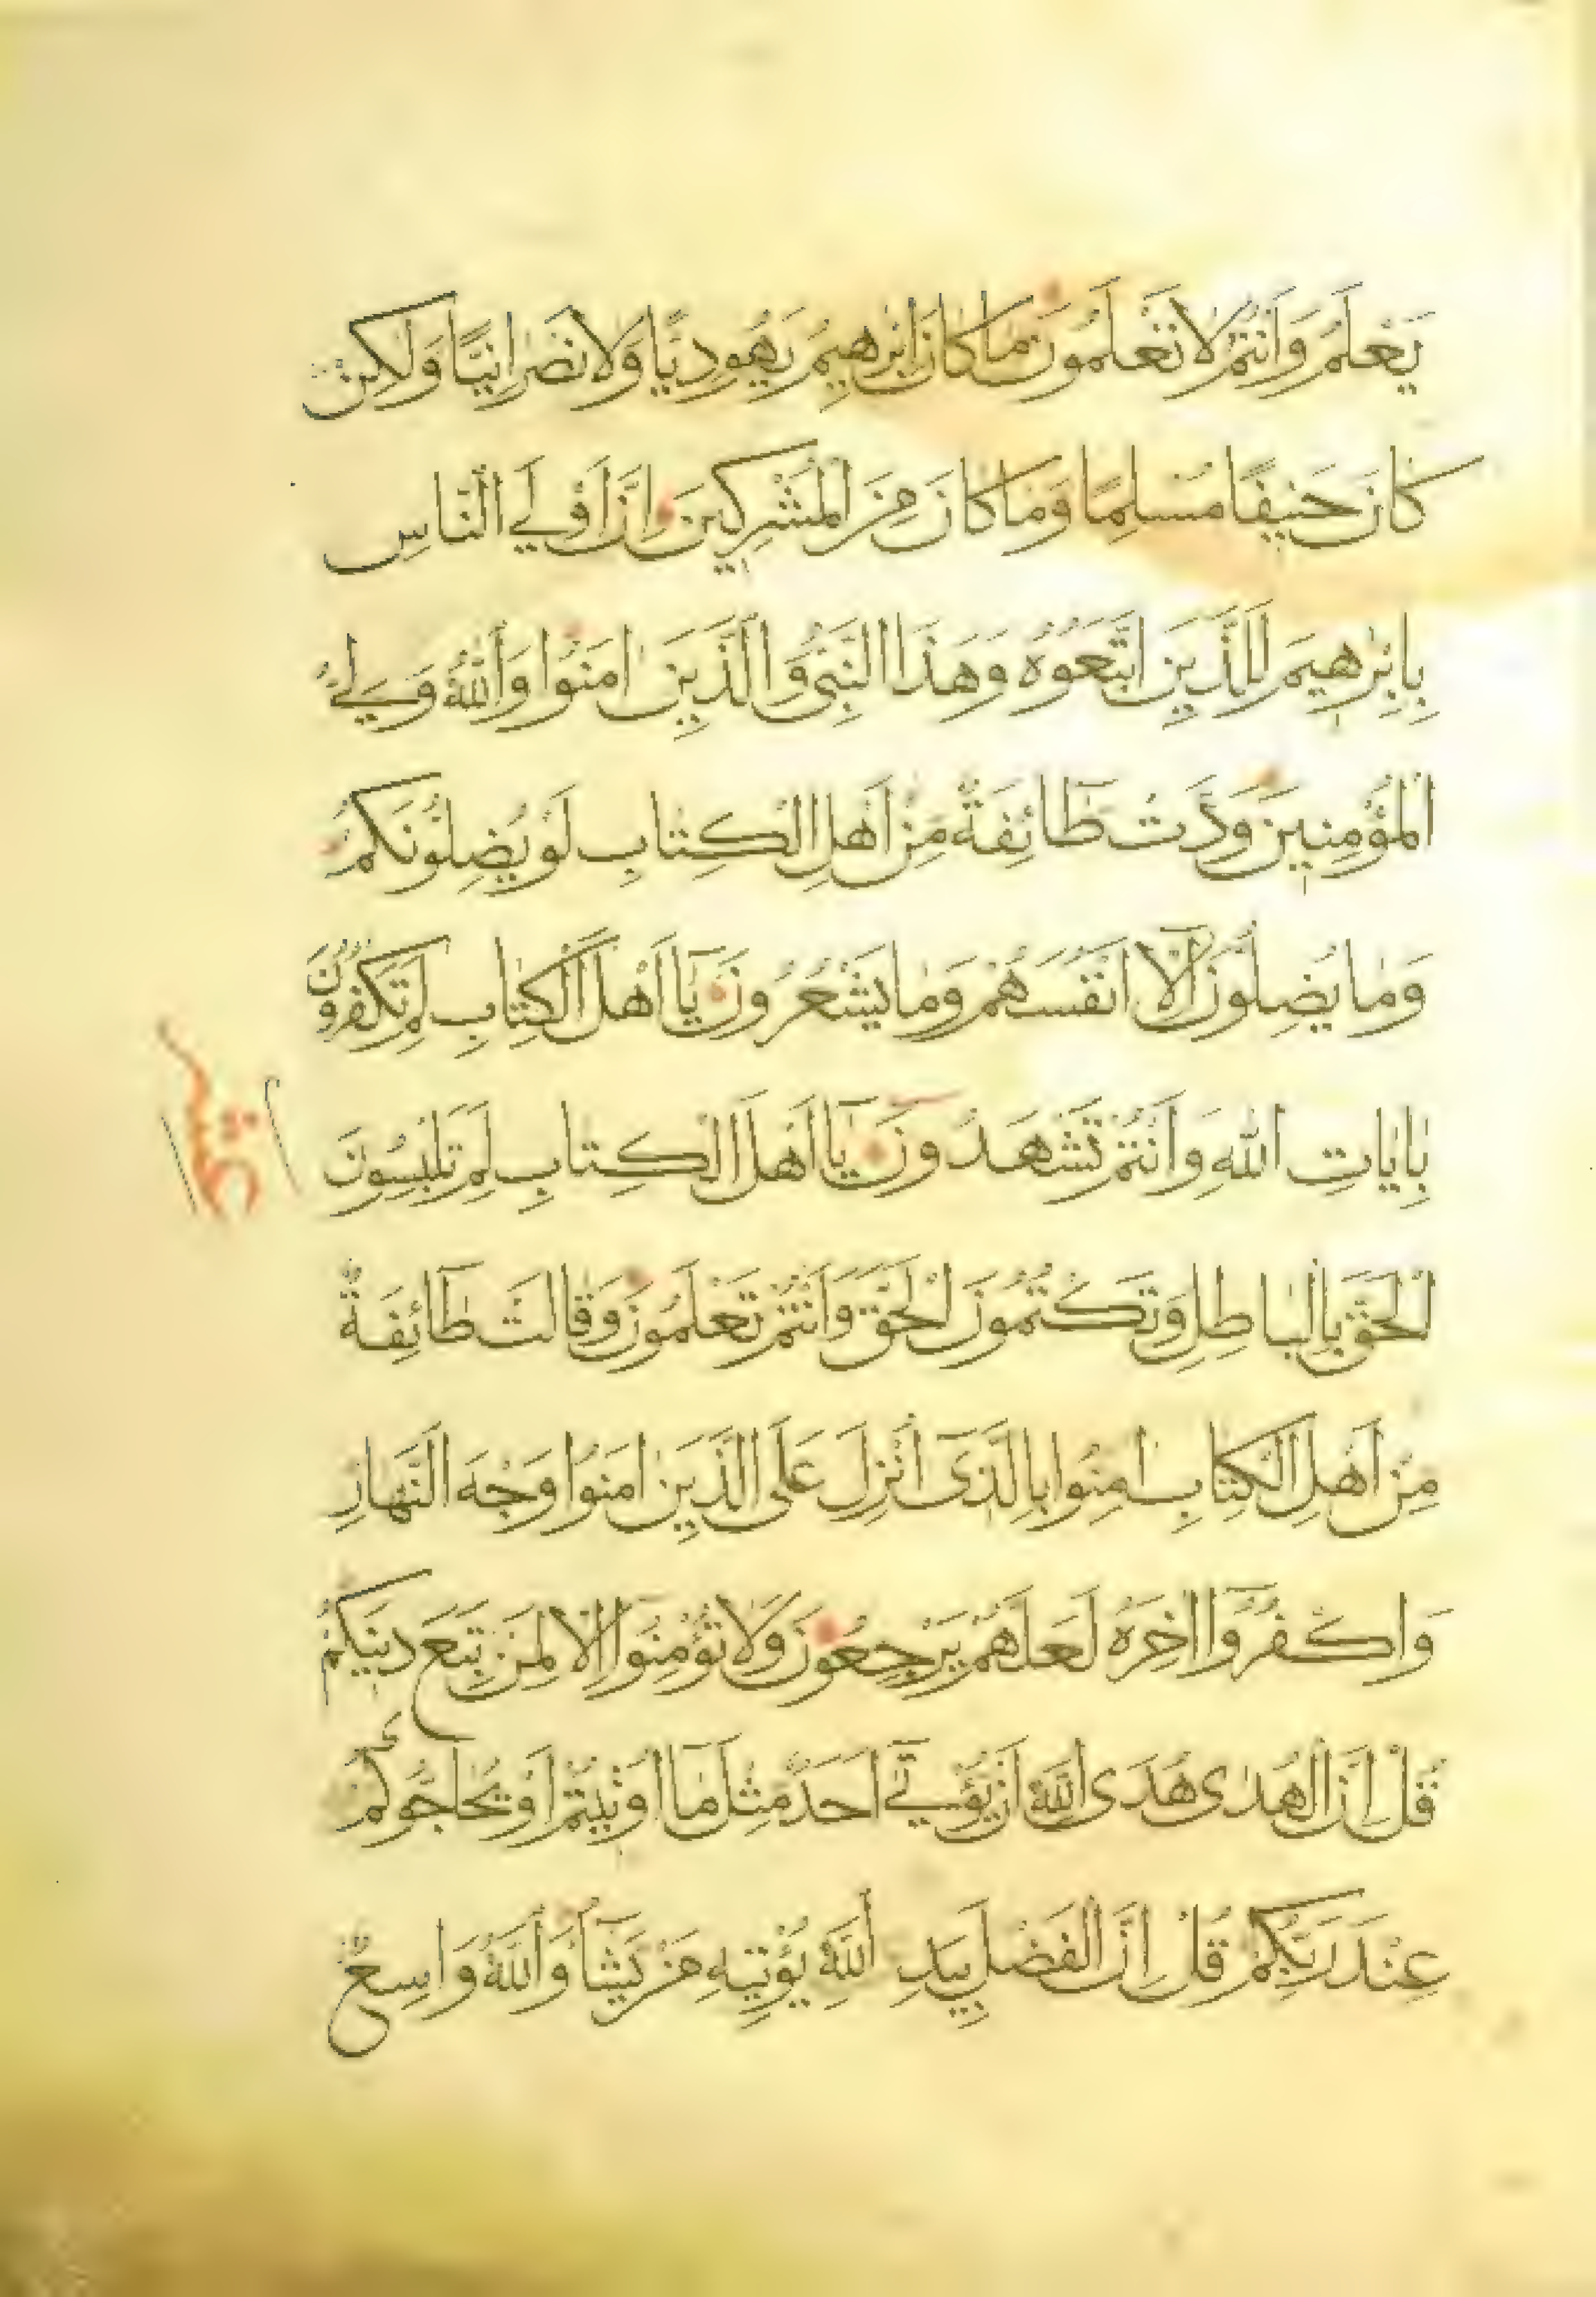 يَعْلَمُ وَاَنْتُمْ لَا تَعْلَمُونَ مَا كَانَ اِبْرٰهِيمُ يَهُودِيًّا وَلَا نَصْرَانِيًّا وَلٰكِنْ
كَانَ حَنِيفًا مُسْلِمًا وَمَا كَانَ مِنَ الْمُشْرِكِينَ اِنَّ اَوْلَي النَّاسِ
بِاِبْرٰهِيمَ لَلَّذِينَ اتَّبَعُوهُ وَهٰذَا النَّبِيُّ وَالَّذِينَ اٰمَنُوا وَاللّٰهُ وَلِيُّ
الْمُؤْمِنِينَ وَدَّتْ طَائِفَةٌ مِنْ اَهْلِ الْكِتَابِ لَوْ يُضِلُّونَكُمْ
وَمَا يُضِلُّونَ اِلَّا اَنْفُسَهُمْ وَمَا يَشْعُرُونَ يَا اَهْلَ الْكِتَابِ لِمَ تَكْفُرُونَ
بِاٰيَاتِ اللّٰهِ وَاَنْتُمْ تَشْهَدُونَ يَا اَهْلَ الْكِتَابِ لِمَ تَلْبِسُونَ
الْحَقَّ بِالْبَاطِلِ وَتَكْتُمُونَ الْحَقَّ وَاَنْتُمْ تَعْلَمُونَ وَقَالَتْ طَائِفَةٌ
مِنْ اَهْلِ الْكِتَابِ اٰمِنُوا بِالَّذِى اُنْزِلَ عَلَى الَّذِينَ اٰمَنُوا وَجْهَ النَّهَارِ
وَاكْفُرُوا اٰخِرَهُ لَعَلَّهُمْ يَرْجِعُونَ وَلَا تُؤْمِنُوا اِلَّا لِمَنْ تَبِعَ دِينَكُمْ
قُلْ اِنَّ الْهُدٰى هُدَى اللّٰهِ اَنْ يُؤْتٰي اَحَدٌ مِثْلَ مَا اُوتِيتُمْ اَوْ يُحَاجُّوكُمْ
عِنْدَ رَبِّكُمْ قُلْ اِنَّ الْفَضْلَ بِيَدِ اللّٰهِ يُؤْتِيهِ مَنْ يَشَاءُ وَاللّٰهُ وَاسِعٌ